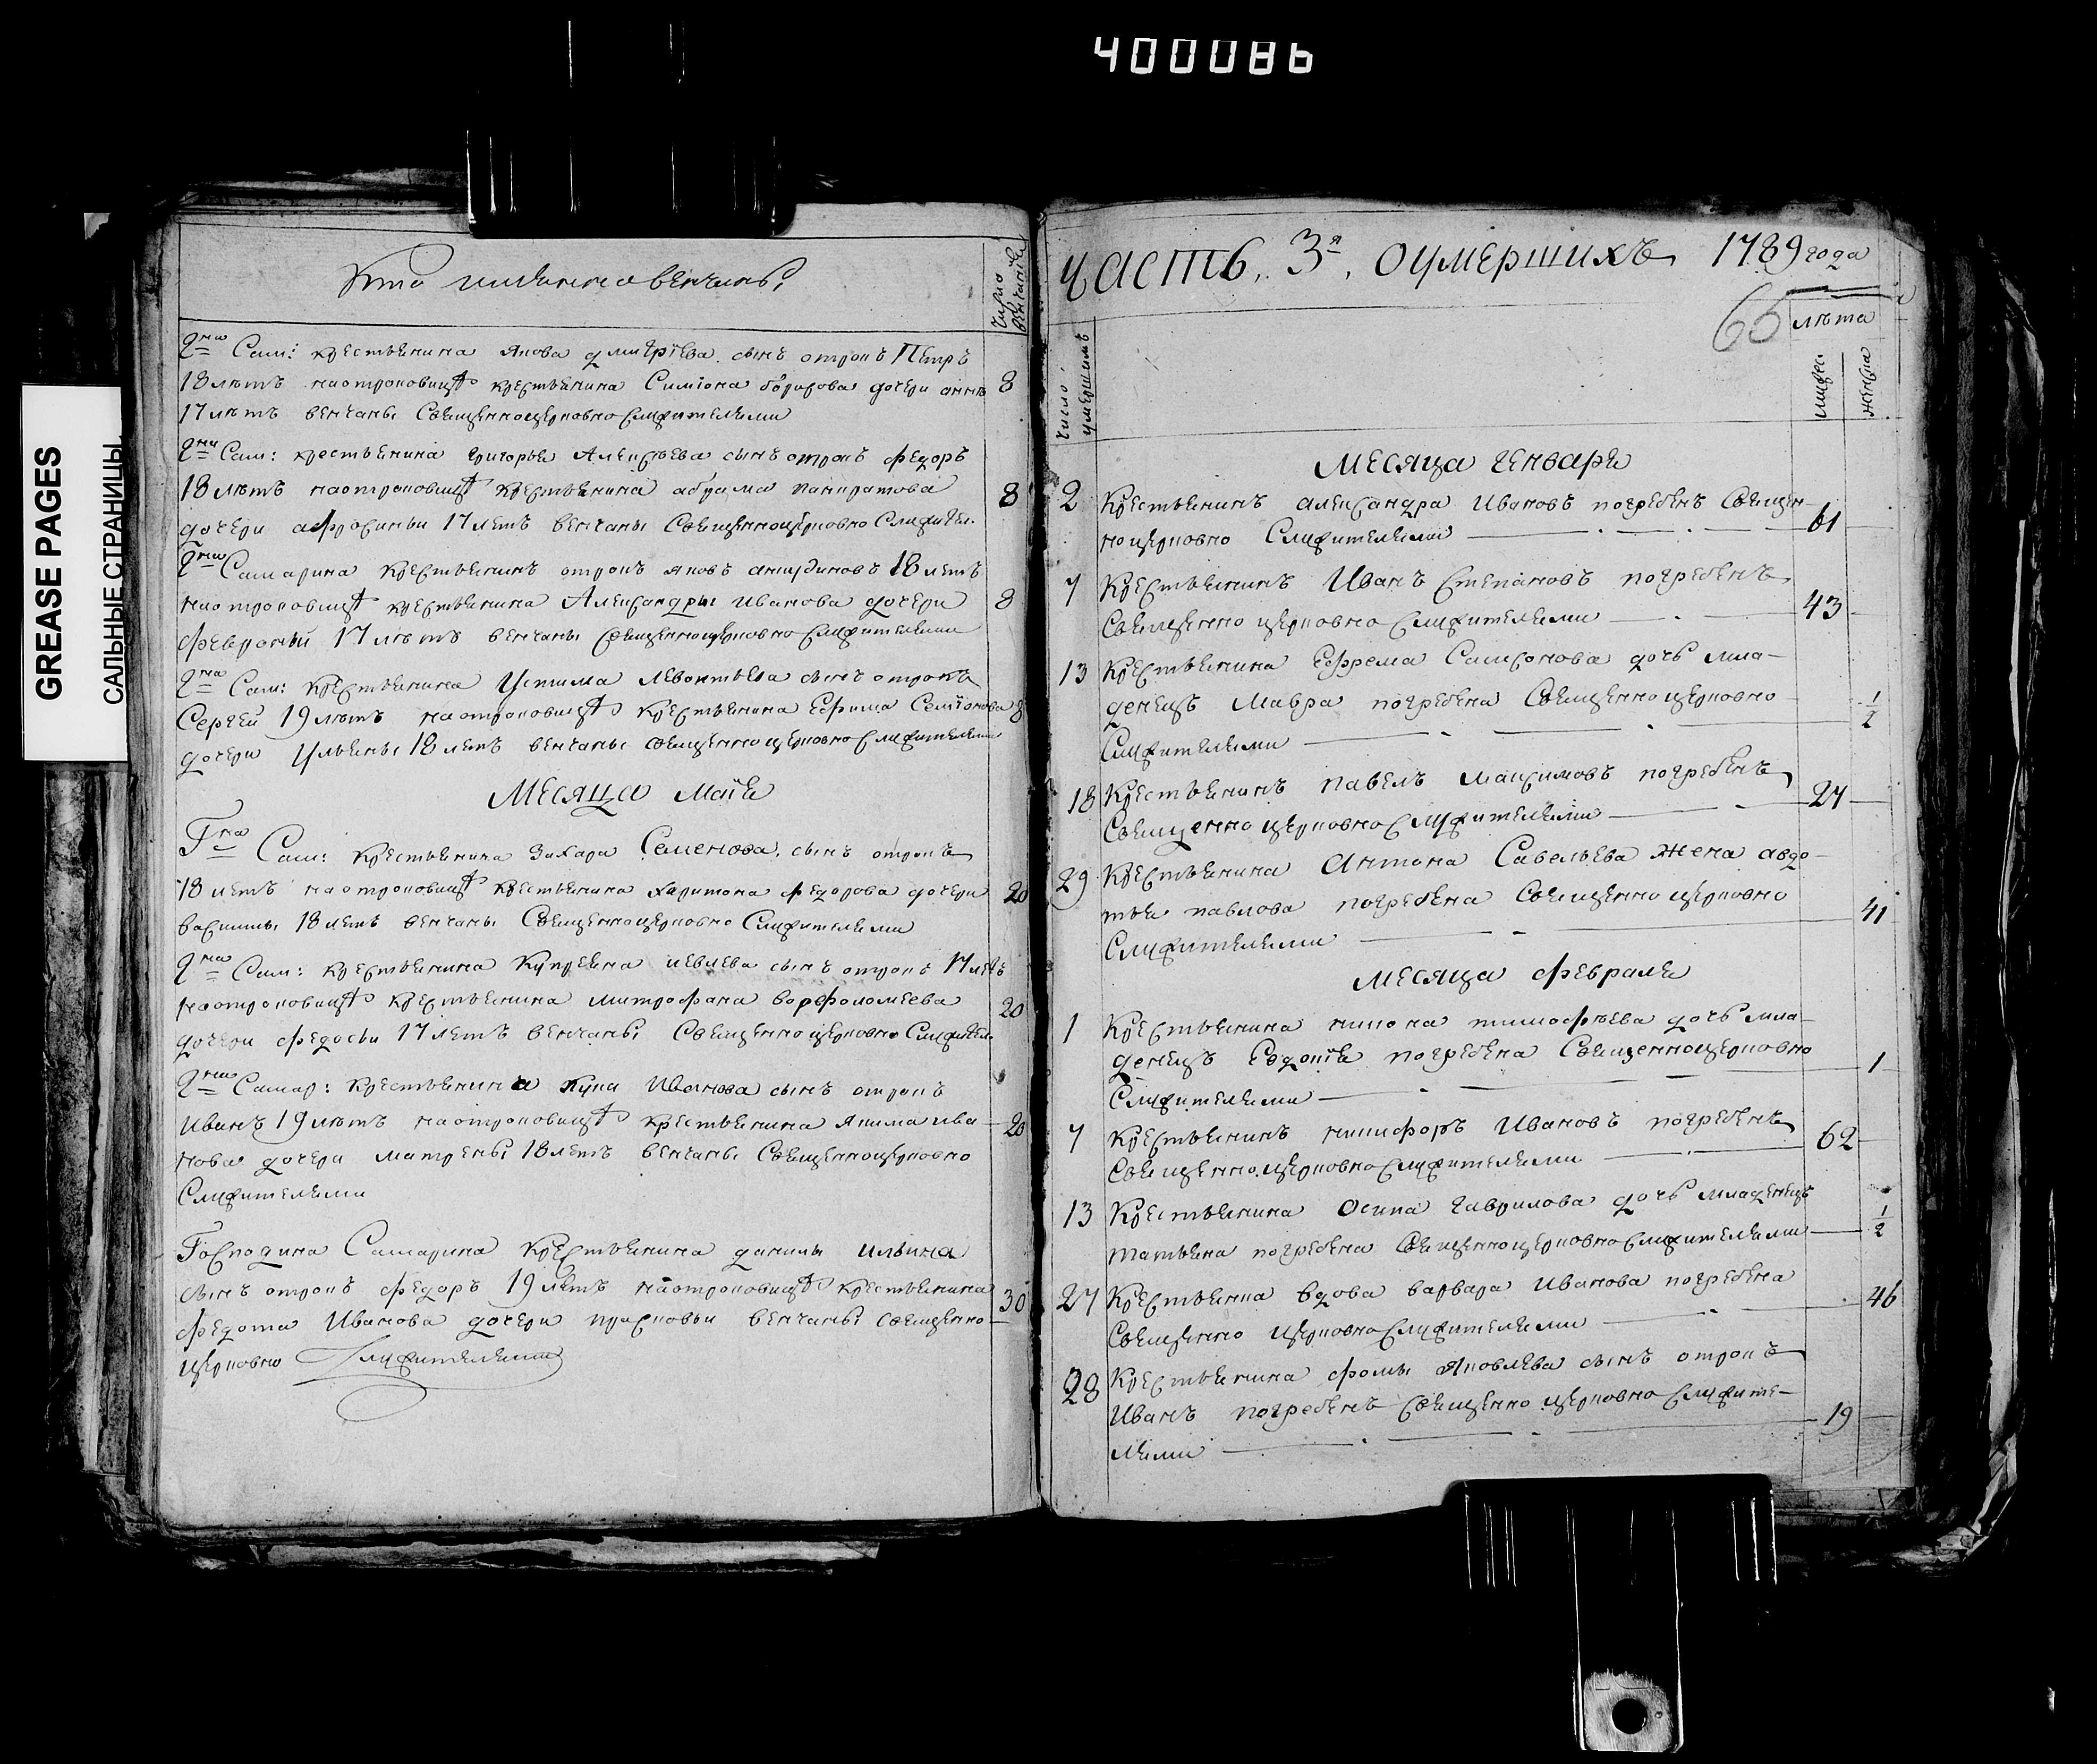 400086
GREASE PAGES
САЛЬНЫЕ СТРАНИЦЫ
Кто имянно венчаны
число венчаніе
Гна Сам: крестьянина Якова дмитріева сынъ отрокъ Петръ
18 лѣтъ на отроковицѣ крестьянина Симіона дочери анны 8
17 лѣтъ венчаны Священноцерковно Служителями
Гна Сам: крестьянина григорья Алексѣева сынъ отрокъ федоръ
18 лѣтъ на отроковицѣ крестьянина абрама панкратова 8
дочери афросиньи 17 летъ венчаны Священноцерковно Служител.
Гна Самарина крестьянинъ отрокъ яковъ 18 летъ
на отроковицѣ крестьянина Александры иванова дочери 8
февроньи 17 лѣтъ венчаны Священноцерковно служителями
Гна Сам: крестьянина Устима левонтьева сынъ отрокъ
Сергей 19 лѣтъ на отроковицѣ крестьянина Ефима Семіонова 8
дочери Ульяны 18 летъ венчаны священноцерковно служителями
Месяца Маія
Гна Сам: крестьянина Захара Семенова сынъ отрокъ
18 летъ на отроковицѣ крестьянина харитона федорова дочери 20
18 летъ венчаны Священноцерковно Служителями
Гна Сам: крестьянина Купреяна иевлева сынъ отрокъ 17 летъ
на отроковицѣ крестьянина митрофана варфоломеева 20
дочери федосьи 17 летъ венчаны Священноцерковно Служител.
Гна Самар: крестьянина луки Иванова сынъ отрокъ
Иванъ 19 лѣтъ на отроковицѣ крестьянина Якима ива 20
нова дочери матрены 18 летъ венчаны Священноцерковно
Служителями
Господина Самарина крестьянина данилы ильина
сынъ отрокъ федоръ 19 летъ на отроковицѣ крестьянина 30
федота Иванова дочери прасковьи венчаны священно
церковно Служителями
часть 3я оумершихъ 1789 года
65
лѣта
число умершимъ
мужес
женска
Месяца генваря
2 Крестьянинъ александра Ивановъ погребенъ Священ
ноцерковно Служителями 61
7 Крестьянинъ Иванъ Степановъ погребенъ
Священно церковно служителями 43
13 Крестьянина Ефрема Самсонова дочь мла-
денецъ Мавра погребена Священноцерковно 1/2
Служителями
18 Крестьянинъ павелъ максимовъ погребенъ
Священно церковно Служителями 27
29 Крестьянина Антона Савельева жена авдо-
тья павлова погребена Священно церковно 41
Служителями
Месяца февраля
1 Крестьянина никона тимофѣева дочь мла-
денецъ Евдокія погребена Священноцерковно 1
Служителями
7 Крестьянинъ никифоръ Ивановъ погребенъ 62
Священно церковно Служителями
13 Крестьянина Осипа гаврилова дочь младенецъ
татьяна погребена Священноцерковно служителями 1/2
27 Крестьянка вдова варвара Иванова погребена 46
Священно церковно Служителями
28 Крестьянина фомы Яковлева сынъ отрокъ
Иванъ погребенъ Священно церковно Служите-
лями 19